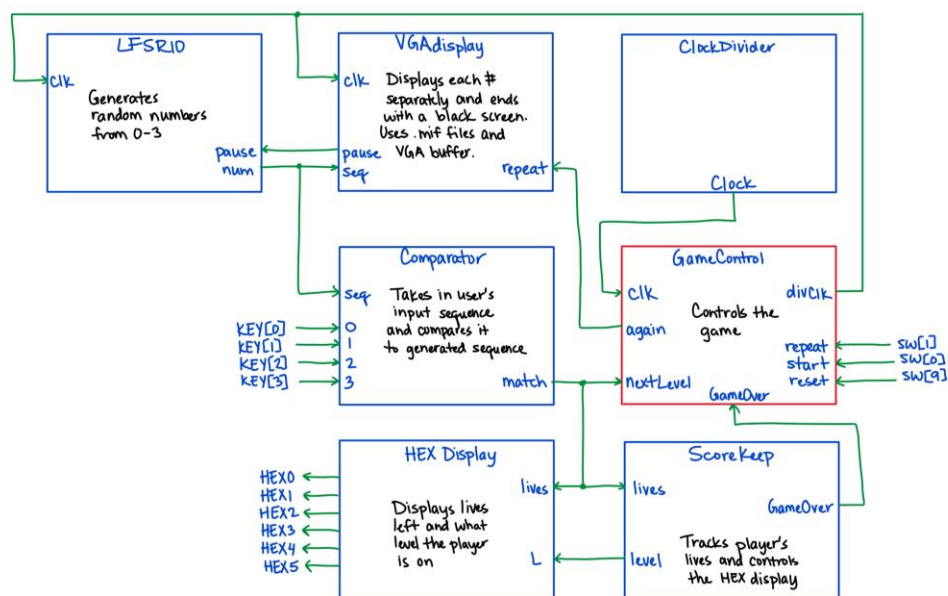 LFSR10
clk
Generates
random numbers
from 0-3
pause
num
VGAdisplay
clk
Displays each #
separatly and ends
with a black screen.
Uses .mif files and
VGA buffer.
pause
seq
repeat
ClockDivider
Clock
Comparator
seq
Takes in user's
input sequence
and compares it
to generated sequence
KEY[0]
KEY[1]
KEY[2]
KEY[3]
0
1
2
3
match
GameControl
clk
divClk
Controls the
game
again
repeat
start
reset
nextLevel
GameOver
SW[1]
SW[0]
SW[9]
HEX Display
HEX0
HEX1
HEX2
HEX3
HEX4
HEX5
lives
Displays lives
left and what
level the player
is on
L
ScoreKeep
lives
GameOver
level
Tracks player's
lives and controls
the HEX display